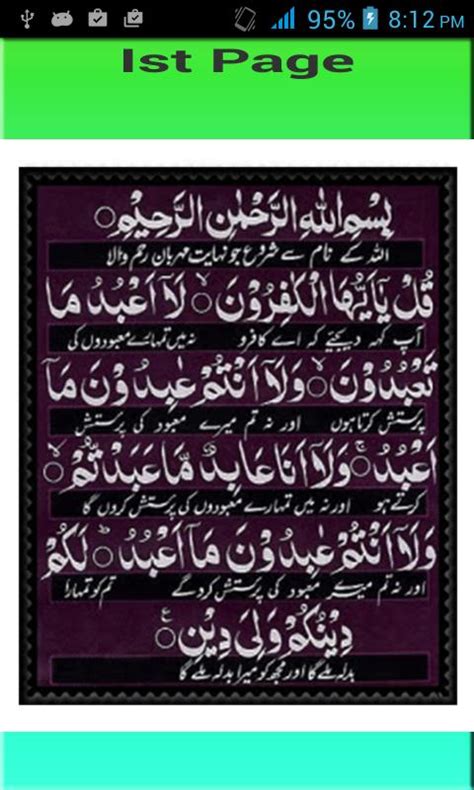 95% 8:12 PM
1st Page
بِسْمِ اللهِ الرَّحْمٰنِ الرَّحِيْمِ○
اللہ کے نام سے شروع جو نہایت مہربان رحم والا
قُلْ يٰۤاَيُّهَا الْكٰفِرُوْنَ○ۙ لَاۤ اَعْبُدُ مَا
آپ کہہ دیجئے کہ اے کافرو نہ میں تمہارے معبودوں کی
تَعْبُدُوْنَ○ۙ وَلَاۤ اَنْتُمْ عٰبِدُوْنَ مَاۤ
پرستش کرتا ہوں اور نہ تم میرے معبود کی پرستش
اَعْبُدُ○ۚ وَلَاۤ اَنَا عَابِدٌ مَّا عَبَدْتُّمْ○ۙ
کرتے ہو اور نہ میں تمہارے معبودوں کی پرستش کروں گا
وَلَاۤ اَنْتُمْ عٰبِدُوْنَ مَاۤ اَعْبُدُ○ؕ لَكُمْ
اور نہ تم میرے معبود کی پرستش کروگے تم کو تمہارا
دِيْنُكُمْ وَلِيَ دِيْنِ○ع
بدلہ ملے گا اور مجھ کو میرا بدلہ ملے گا